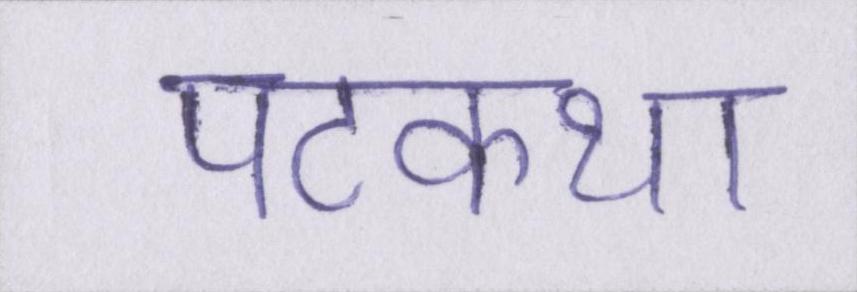 पटकथा